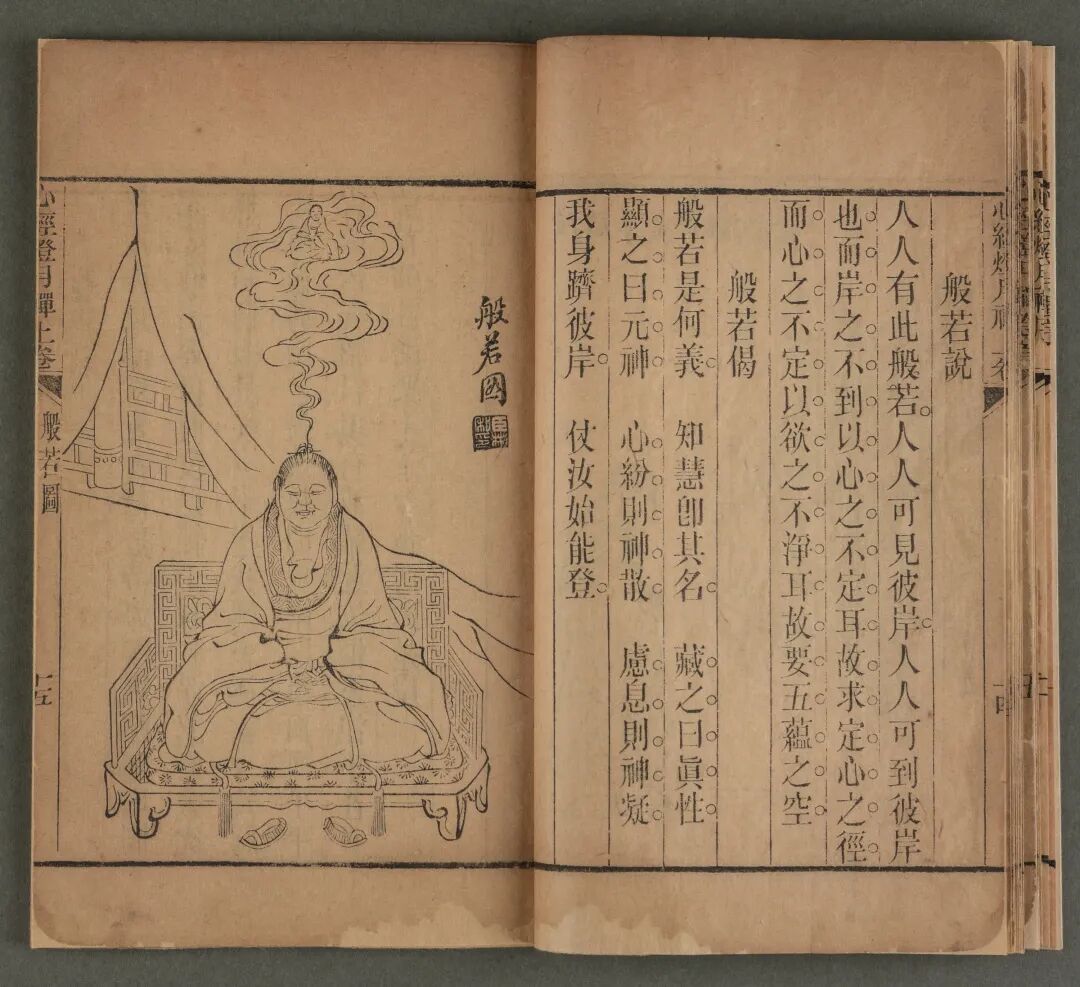 般若說
人人有此般若。人人可見彼岸。人人可到彼岸
也。而岸之不到。以心之不定耳。故求定心之徑。
而心之不定。以欲之不淨耳。故要五蘊之空。
般若偈
般若是何義。 知慧卽其名。 藏之曰眞性。
顯之曰元神。 心紛則神散。 慮息則神凝。
我身躋彼岸。 仗汝始能登。
十四
般若圖
心經燈月禪上卷
般若圖
十五